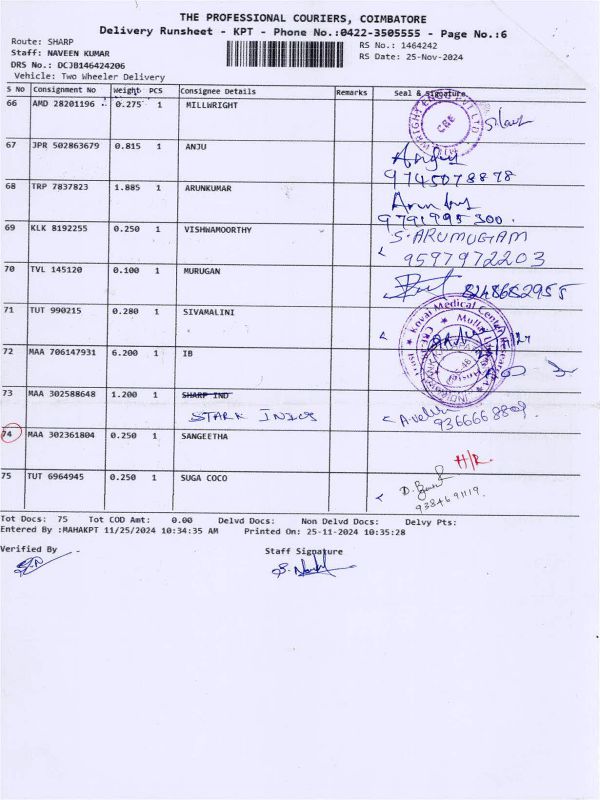 THE PROFESSIONAL COURIERS, COIMBATORE
Delivery Runsheet - KPT - Phone No.:0422-3505555 - Page No.:6
Route: SHARP
RS No.: 1464242
Staff: NAVEEN KUMAR
RS Date: 25-Nov-2024
DRS No.: DCJB146424206
Vehicle: Two Wheeler Delivery
S No Consignment No Weight PCS Consignee Details Remarks Seal & Signature
66 AMD 28201196 0.275 1 MILLWRIGHT
CBE
67 JPR 502863679 0.815 1 ANJU
9745078878
68 TRP 7837823 1.885 1 ARUNKUMAR
9791995300.
69 KLK 8192255 0.250 1 VISHWAMOORTHY S.ARUMUGAM
9597972203
70 TVL 145120 0.100 1 MURUGAN
8248652955
71 TUT 990215 0.280 1 SIVAMALINI
Kovai Medical Center
72 MAA 706147931 6.200 1 IB
73 MAA 302588648 1.200 1 SHARP IND
STARK INDS
74 MAA 302361804 0.250 1 SANGEETHA
H/R.
75 TUT 6964945 0.250 1 SUGA COCO
9384691119.
Tot Docs: 75 Tot COD Amt: 0.00 Delvd Docs: Non Delvd Docs: Delvy Pts:
Entered By :MAHAKPT 11/25/2024 10:34:35 AM Printed On: 25-11-2024 10:35:28
Verified By Staff Signature